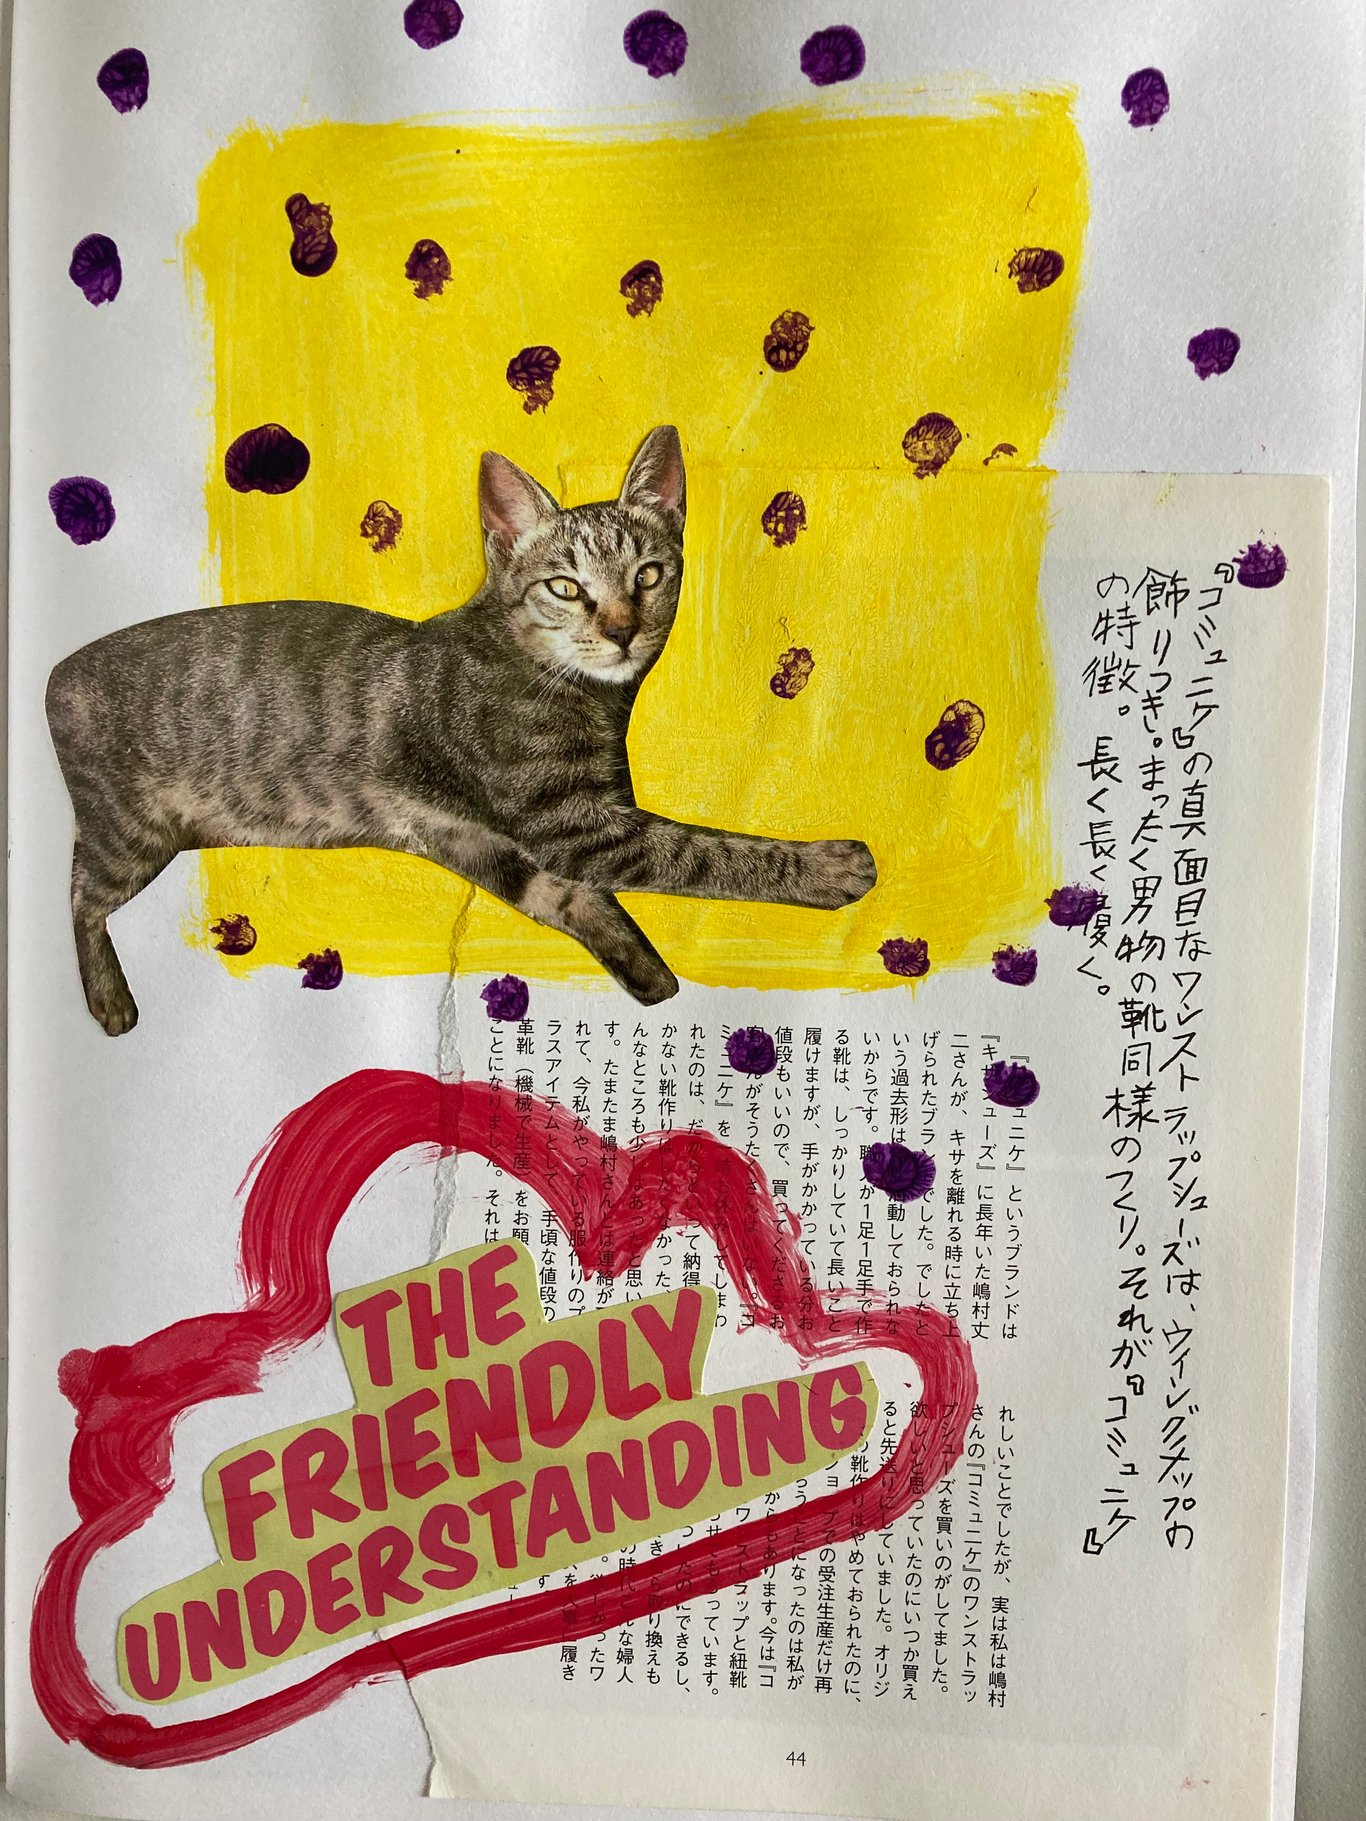 『コミュニケ』の真面目なワンストラップシューズは、ウィングチップの
飾りつき。まったく男物の靴同様のつくり。それが『コミュニケ』
の特徴。長く長く履く。
ュニケ』というブランドは
『キサシューズ』に長年いた嶋村丈
二さんが、キサを離れる時に立ち上
げられたブランドでした。でしたと
いう過去形は活動しておられな
いからです。職人が1足1足手で作
る靴は、しっかりしていて長いこと
履けますが、手がかかっている分お
値段もいいので、買ってくださるお
客さんがそうたくさんはいない。『コ
ミュニケ』を一時お休みしてしまわ
れたのは、だからといって納得
かない靴作りはしたくなかった、
んなところも少しはあったと思い
す。たまたま嶋村さんとは連絡が
れて、今私がやっている服作りのプ
ラスアイテムとして、手頃な値段の
革靴(機械で生産)をお願
ことになりました。それは
れしいことでしたが、実は私は嶋村
さんの『コミュニケ』のワンストラッ
プシューズを買いのがしてました。
欲しいと思っていたのにいつか買え
ると先送りにしていました。オリジ
の靴作りはやめておられたのに、
ョップでの受注生産だけ再
うことになったのは私が
からもあります。今は『コ
ワンストラップと紐靴
せてもらっています。
したのにできるし、
取り換えも
な婦人
かったワ
履き
THE
FRIENDLY
UNDERSTANDING
44